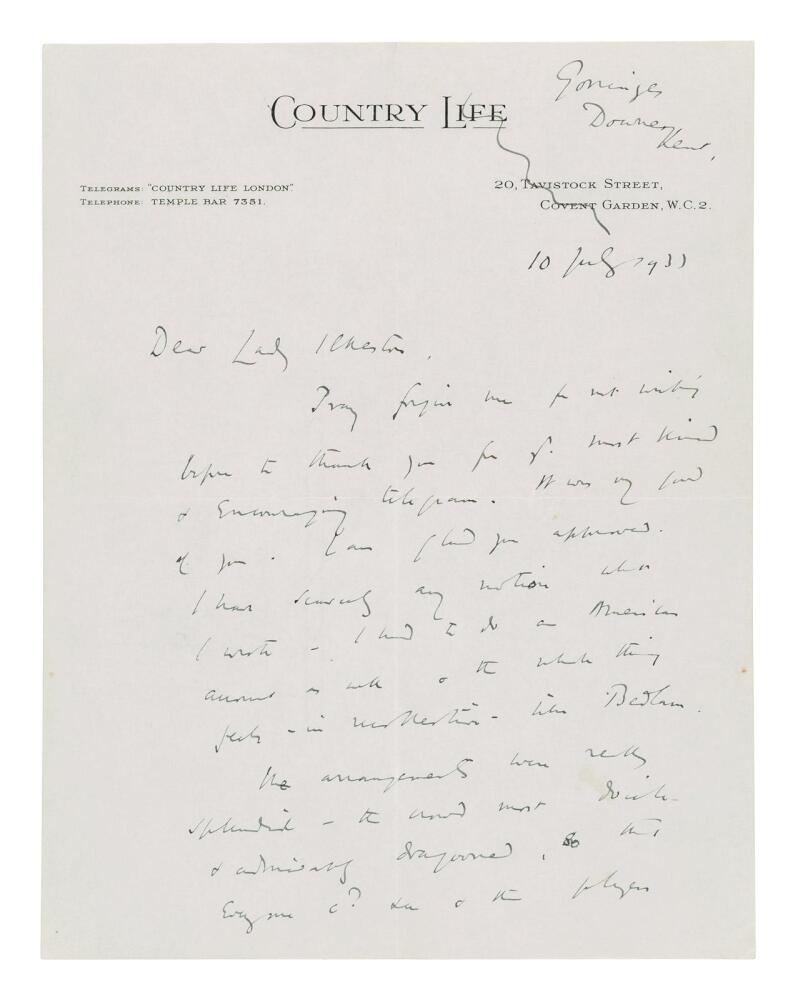 COUNTRY LIFE
Gorringes
Downe
Kent,
TELEGRAMS: "COUNTRY LIFE LONDON"
TELEPHONE: TEMPLE BAR 7351.
20, TAVISTOCK STREET,
COVENT GARDEN, W.C.2.
10 July 1933
Dear Lady Ilchester,
Pray forgive me for not writing
before to thank you for yr. most kind
& Encouraging telegram. It was very good
of you. I am glad you approved.
I have scarcely any notion what
I wrote - I had to do an American
account as well & the whole thing
feels - in recollection - like Bedlam.
The arrangements were really
splendid - the crowd most docile
& admirably dragooned, so that
Everyone cd. see & the players